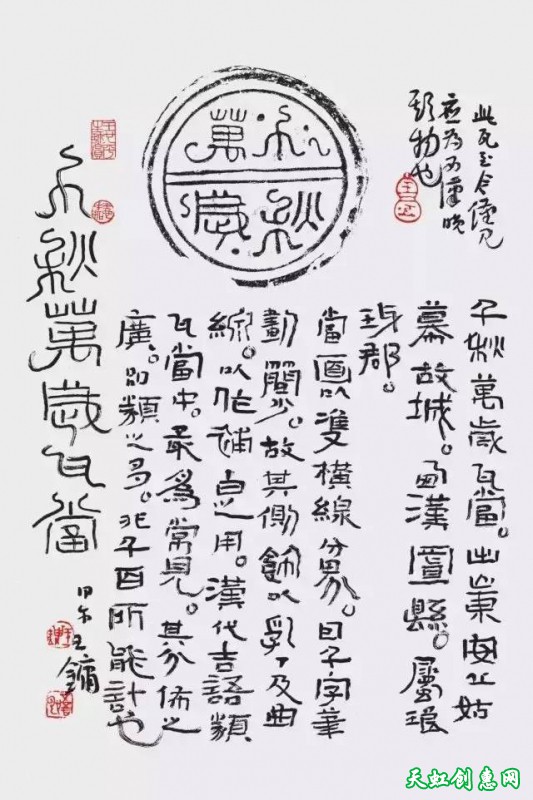 此瓦至今僅見
應為西漢晚
期物也
千秋
萬歲
千秋萬歲瓦當。出東安丘姑
幕故城。西漢置縣。屬琅
琊郡。
當面以雙橫線分界。因千字筆
劃簡少。故其側飾以乳丁及曲
線。以作補白之用。漢代吉語類
瓦當中。最為常見。其分佈之
廣。品類之多。非千百所能計也
千秋萬歲瓦當
甲午王鏞
天虹创意网